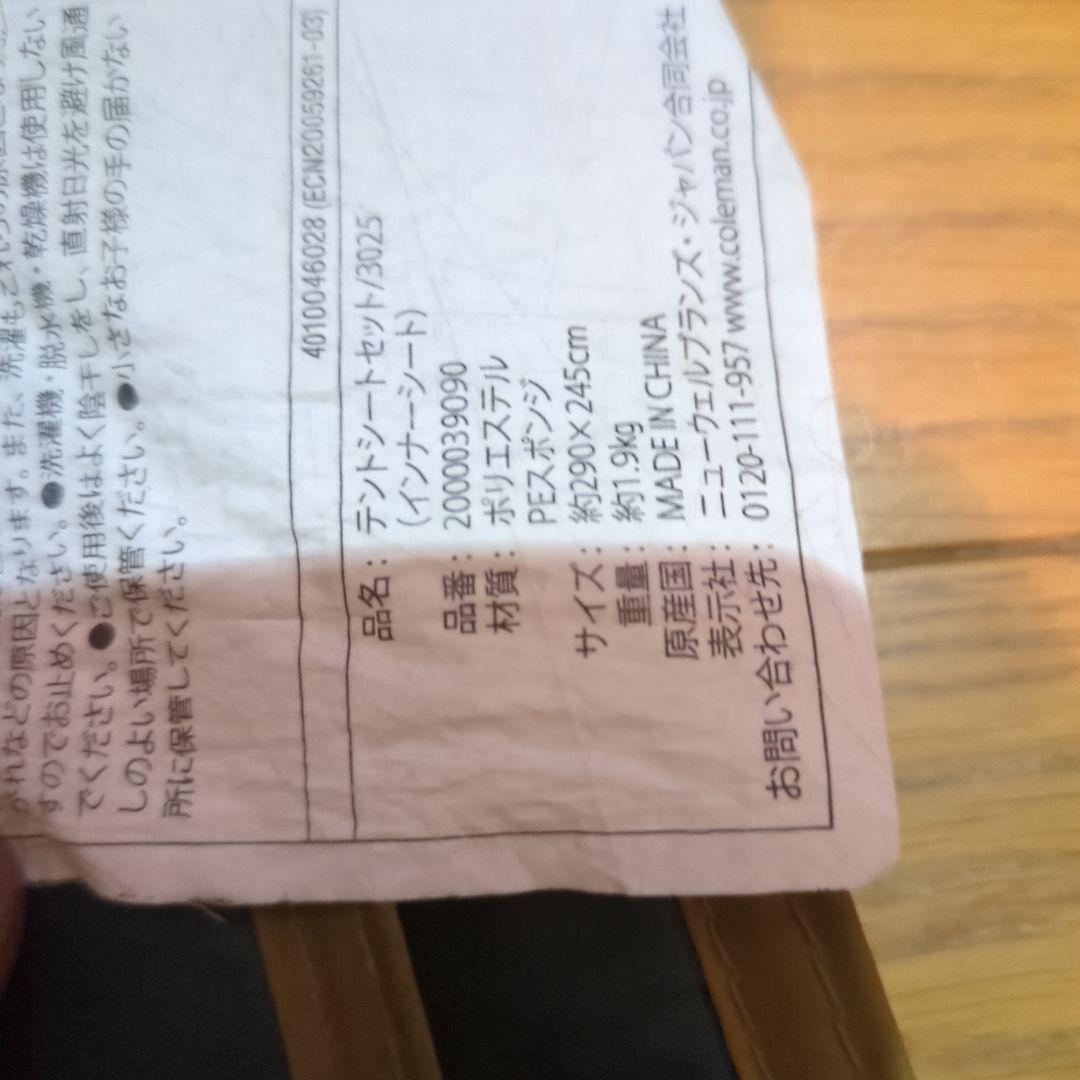 がれなどの原因となります。また、洗濯も
すのでお止めください。●洗濯機・脱水機・乾燥機は使用しない
でください。●ご使用後はよく陰干しをし、直射日光を避け風通
しのよい場所で保管ください。●小さなお子様の手の届かない
所に保管してください。
4010046028 (ECN20059261-03)
品名: テントシートセット/3025
(インナーシート)
品番: 2000039090
材質: ポリエステル
PEスポンジ
サイズ: 約290×245cm
重量: 約1.9kg
原産国: MADE IN CHINA
表示社: ニューウェルブランズ・ジャパン合同会社
お問い合わせ先: 0120-111-957 www.coleman.co.jp